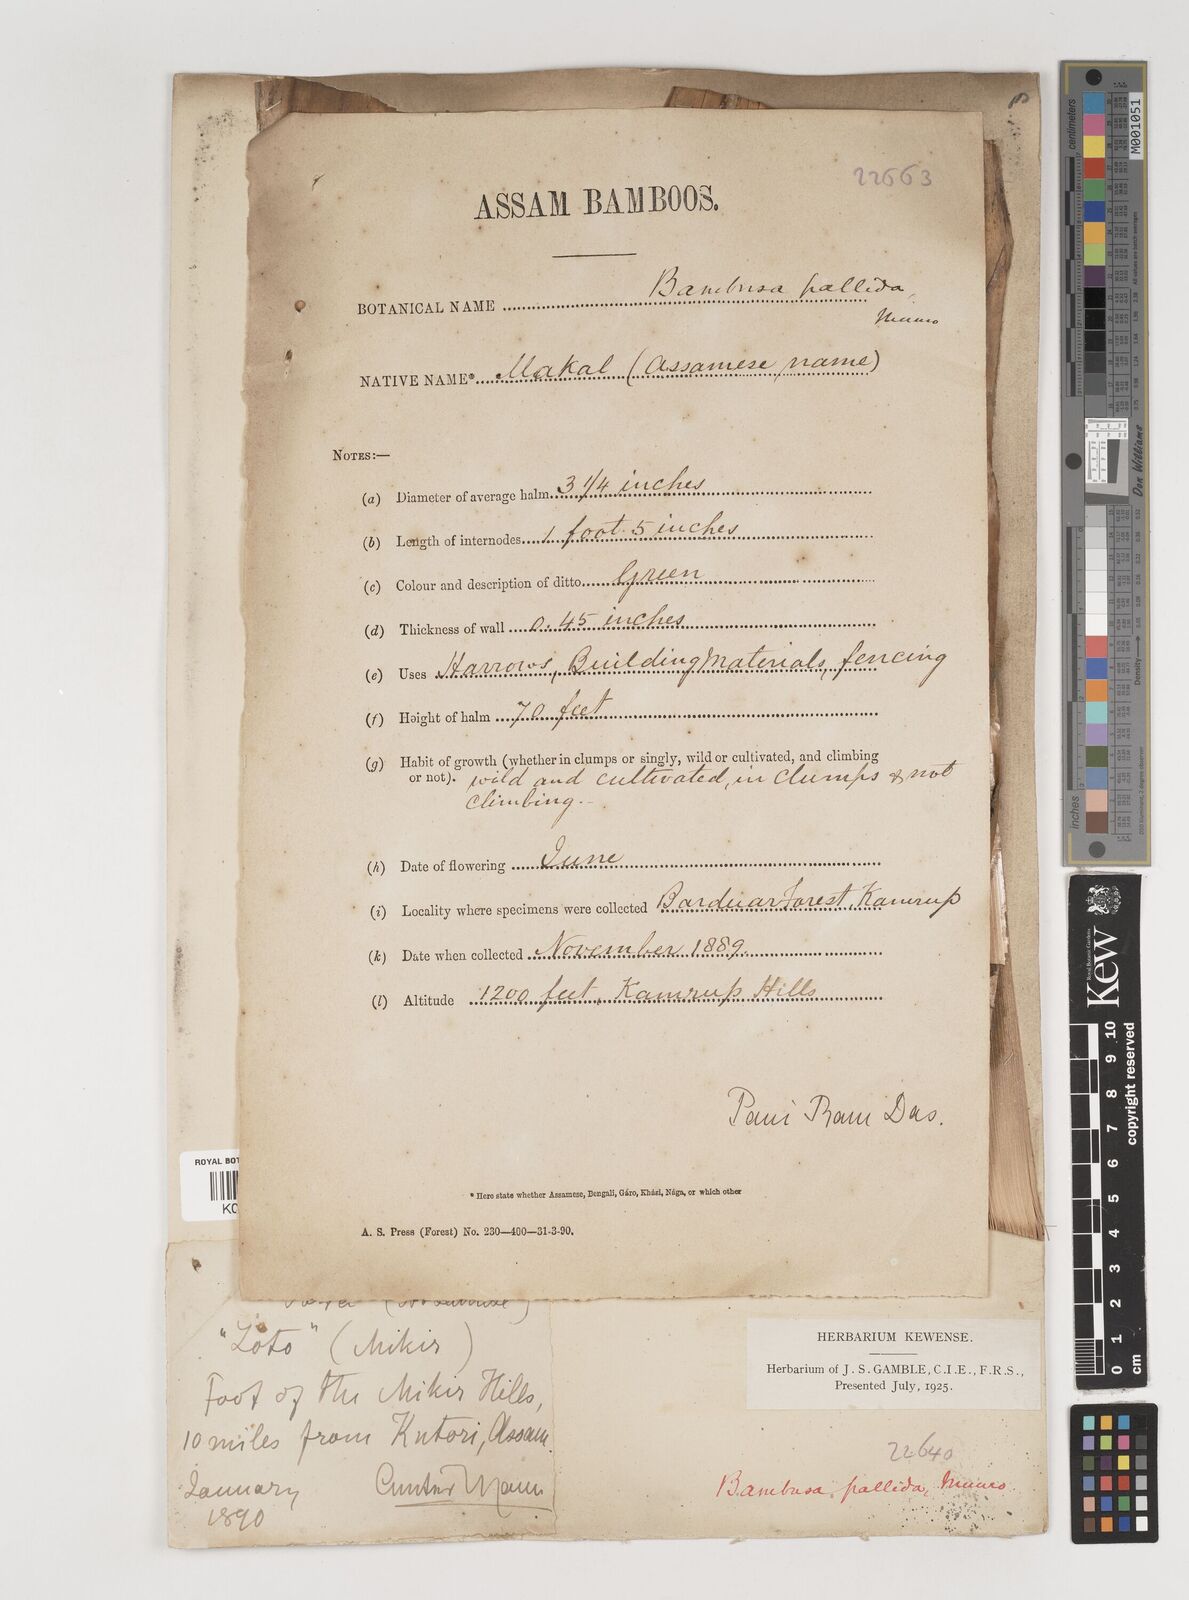 22663
ASSAM BAMBOOS.
BOTANICAL NAME Bambusa pallida,
Munro
NATIVE NAME* Makal (Assamese name)
NOTES:—
(a) Diameter of average halm 3 1/4 inches
(b) Length of internodes 1 foot 5 inches
(c) Colour and description of ditto Green
(d) Thickness of wall 0.45 inches
(e) Uses Harrows, Building Materials, fencing
(f) Height of halm 70 feet
(g) Habit of growth (whether in clumps or singly, wild or cultivated, and climbing
or not). wild and cultivated, in clumps & not
climbing.
(h) Date of flowering June
(i) Locality where specimens were collected Barduar Forest, Kamrup
(k) Date when collected November 1889.
(l) Altitude 1200 feet, Kamrup Hills
Pani Ram Das.
* Here state whether Assamese, Bengali, Gáro, Khási, Nága, or which other
A. S. Press (Forest) No. 230—400—31-3-90.
ROYAL BOT
K0
"Loto" (Mikir)
Foot of the Mikir Hills,
10 miles from Kutori, Assam.
January
1890
Mann
HERBARIUM KEWENSE.
Herbarium of J. S. GAMBLE, C.I.E., F.R.S.,
Presented July, 1925.
22640
Bambusa pallida, Munro
centimeters
M001051
Don Williams
inches
Density
Royal Botanic Gardens
Kew
0 1 2 3 4 5 6 7 8 9 10
cm
copyright reserved